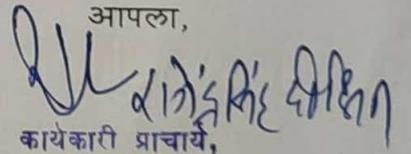 आपला,
राजेंद्रसिंह दीक्षित
कार्यकारी प्राचार्य,